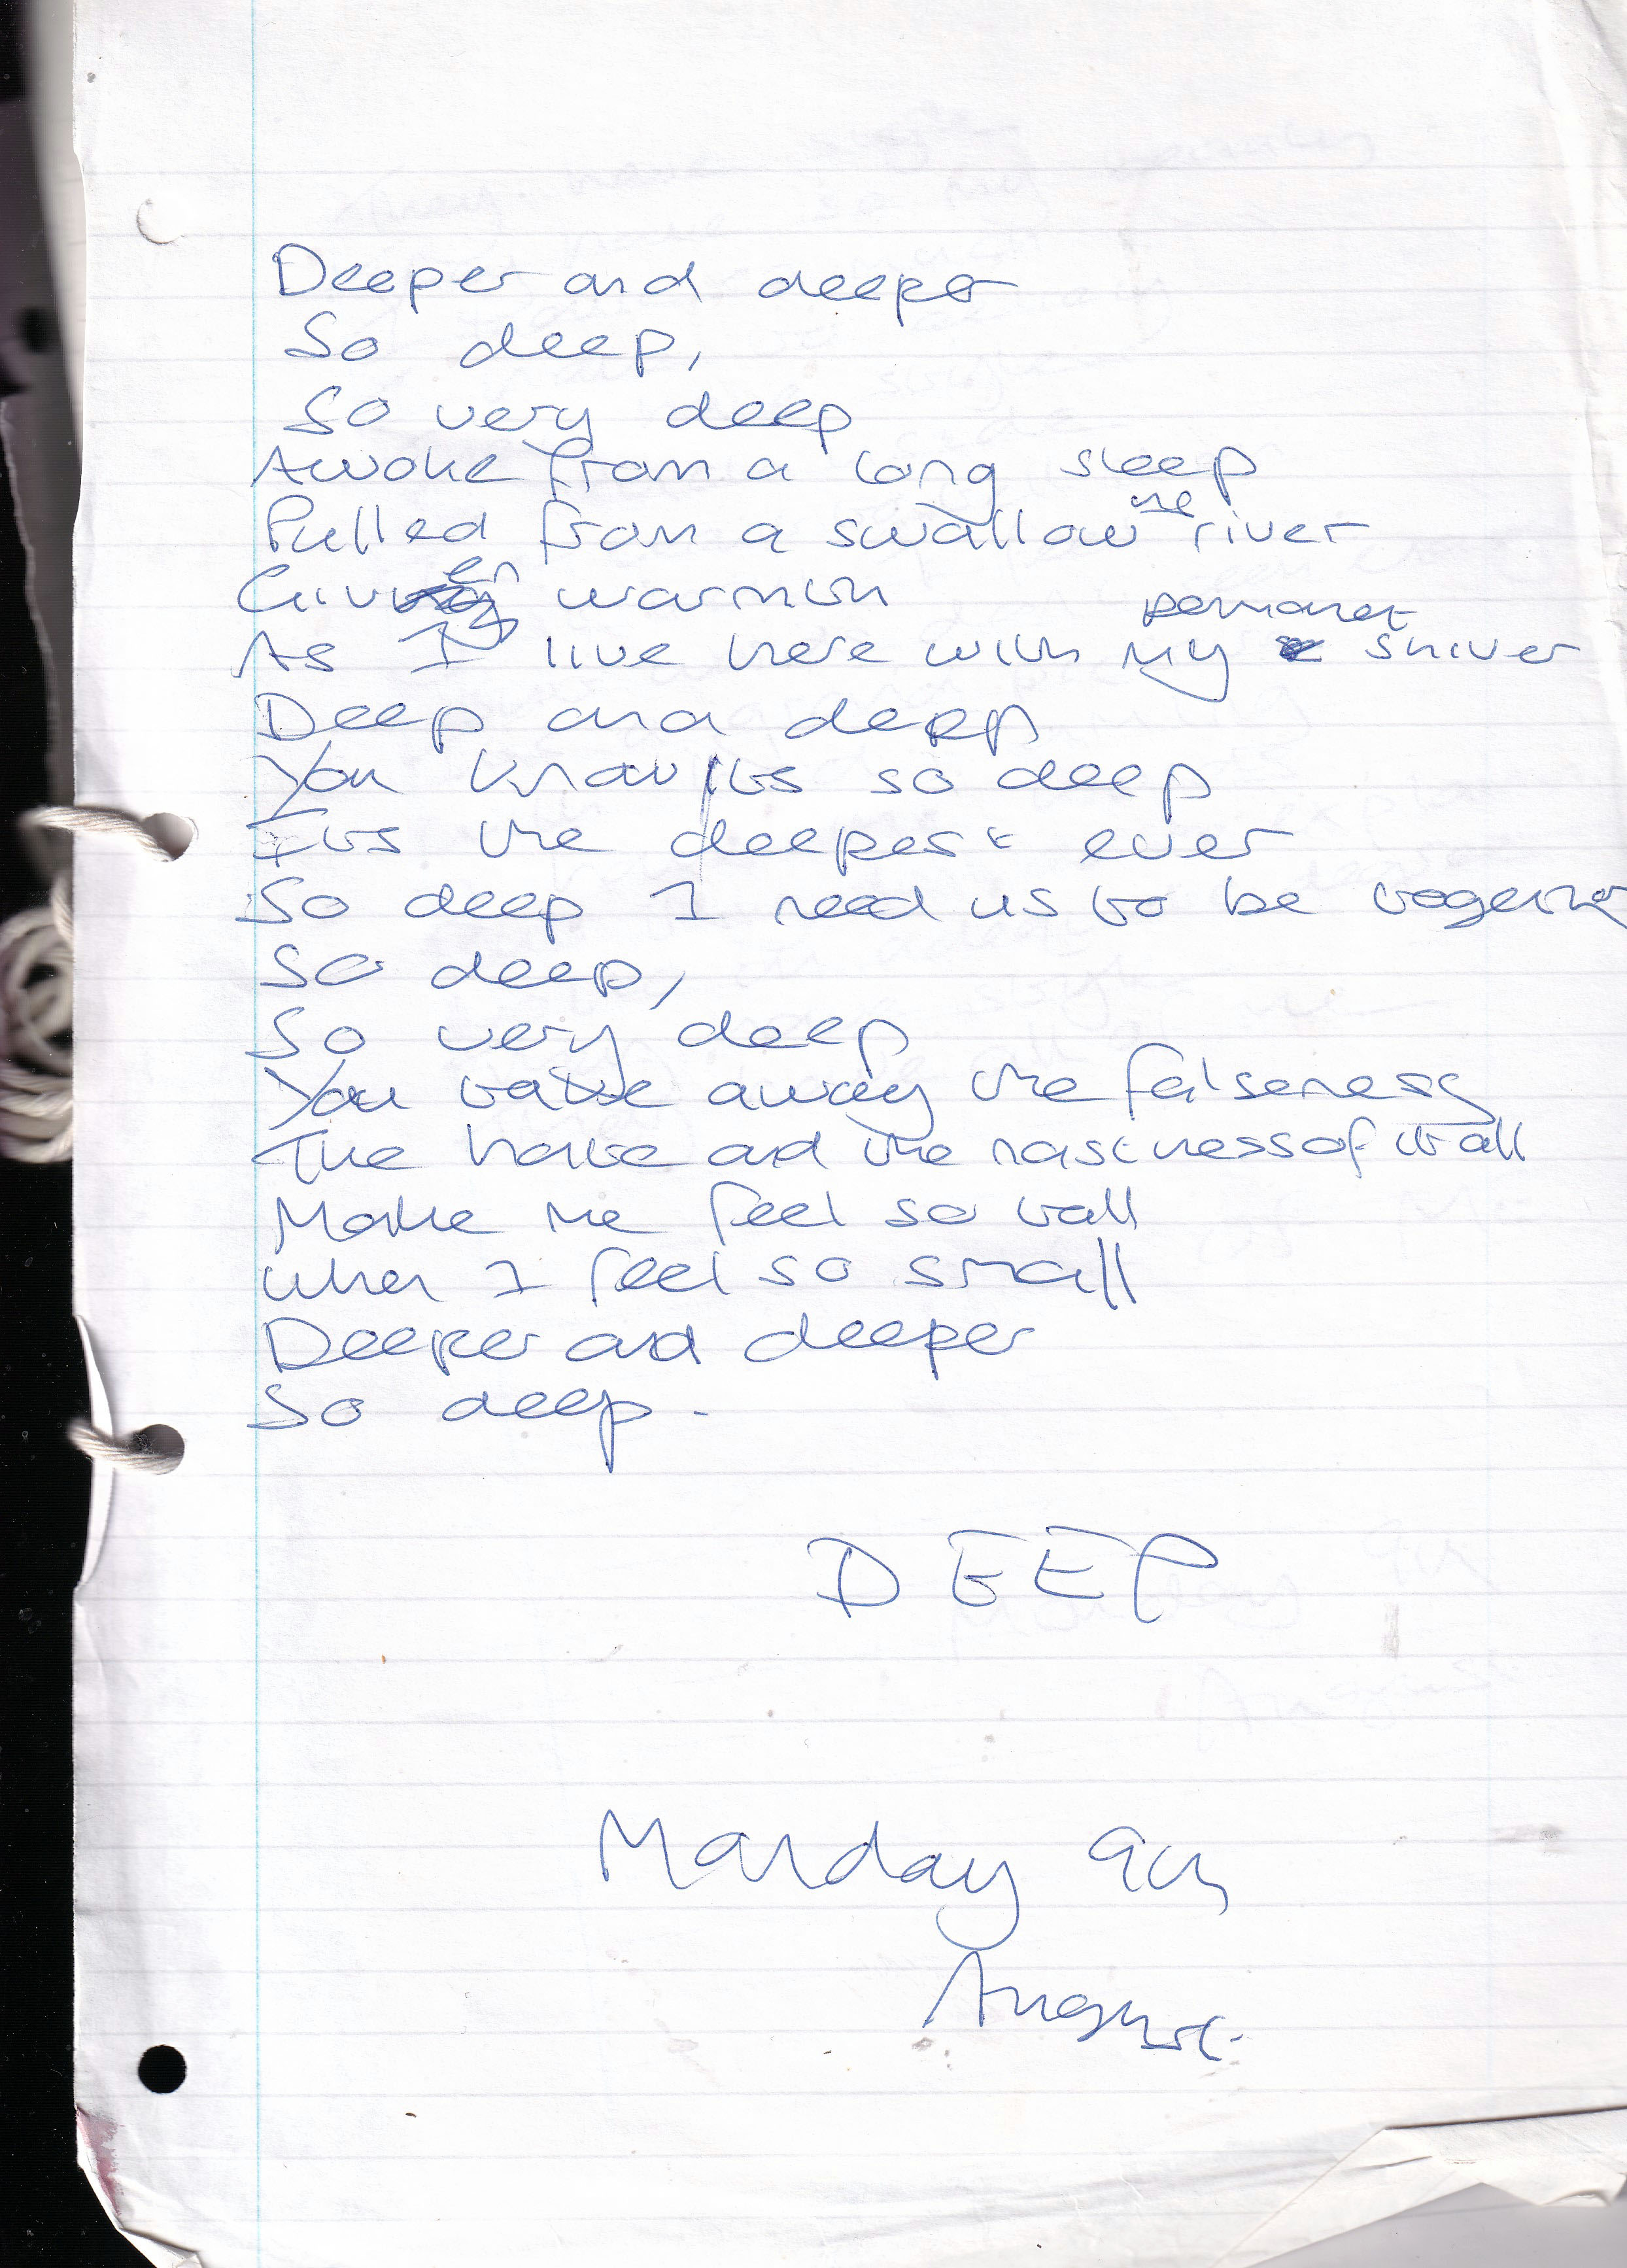 Deeper and deeper
So deep,
So very deep
Awoke from a long sleep
Pulled from a swallow the river
Given warmth
As I live here with my permanet shiver
Deep and deep
You know its so deep
Its the deepest ever
So deep I need us to be together
So deep,
So very deep
You take away the falseness
The hate and the nastness of it all
Make me feel so tall
when I feel so small
Deeper and deeper
So deep.
DEEP
Monday 9th
August.